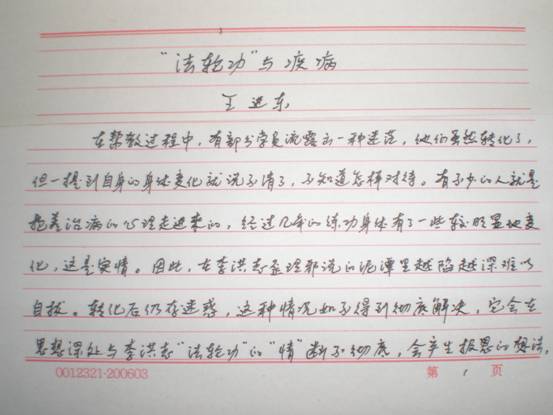 “法轮功”与疾病
王进东
在帮教过程中，有部分学员流露出一种迷茫，他们虽然转化了，
但一提到自身的身体变化就说不清了，不知道怎样对待。有不少的人就是
抱着治病的心理走进来的，经过几年的练功身体有了一些较明显地变
化，这是实情。因此，在李洪志歪理邪说的泥潭里越陷越深难以
自拔。转化后仍存迷惑，这种情况如不得到彻底解决，它会在
思想深处与李洪志“法轮功”的“情”断不彻底，会产生报恩的想法，
0012321-200603 第 1 页